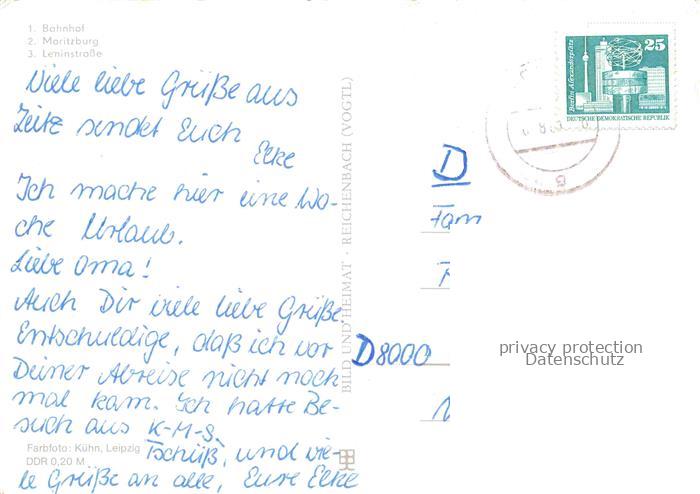 1. Bahnhof
2. Moritzburg
3. Leninstraße
Viele liebe Grüße aus
Zeitz sendet Euch
Elke
Ich mache hier eine Wo-
che Urlaub.
Liebe Oma!
Auch Dir viele liebe Grüße.
Entschuldige, daß ich vor
Deiner Abreise nicht noch
mal kam. Ich hatte Be-
such aus K-M-S.
Tschüß, und vie-
le Grüße an alle, Eure Elke
Farbfoto: Kühn, Leipzig
DDR 0,20 M
BILD UND HEIMAT · REICHENBACH (VOGTL)
Berlin, Alexanderplatz
25
DEUTSCHE DEMOKRATISCHE REPUBLIK
D
Fam
D8000
privacy protection
Datenschutz